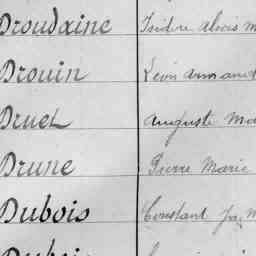 Droudaine Isidore alexis
Drouin Léon armand
Druet Auguste
Drune Pierre Marie
Dubois Constant
Dubois